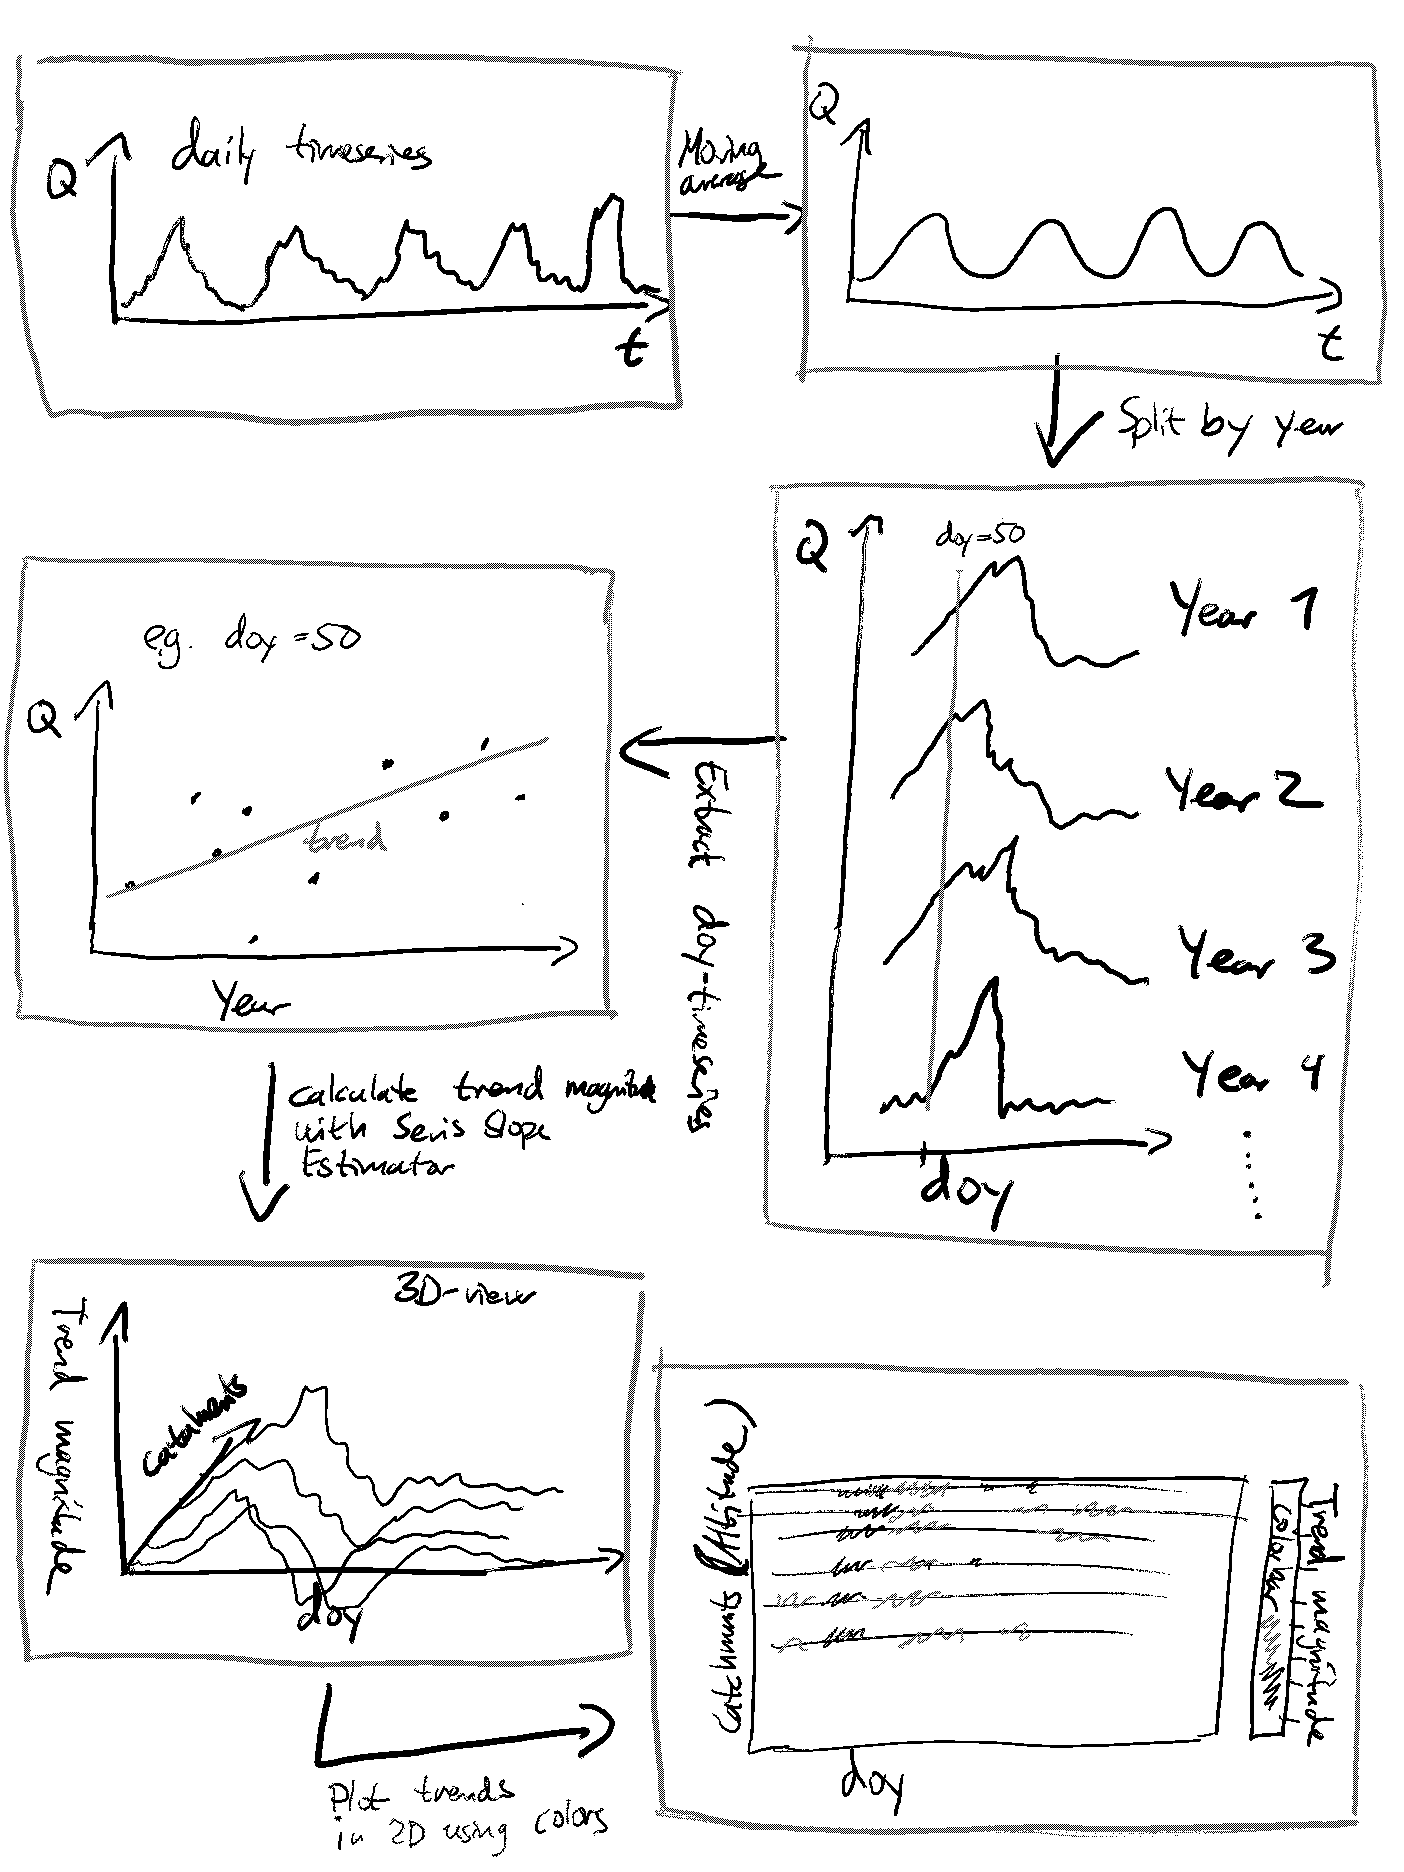 Q
daily timeseries
t
Moving
average
Q
t
Split by year
Q
doy=50
Year 1
Year 2
Year 3
Year 4
doy
Extract doy-timeseries
e.g. doy=50
Q
trend
Year
calculate trend magnitude
with Sens Slope
Estimator
3D-view
Trend magnitude
catchments
doy
Plot trends
in 2D using colors
Catchments (Altitude)
doy
Colorbar
Trend magnitude